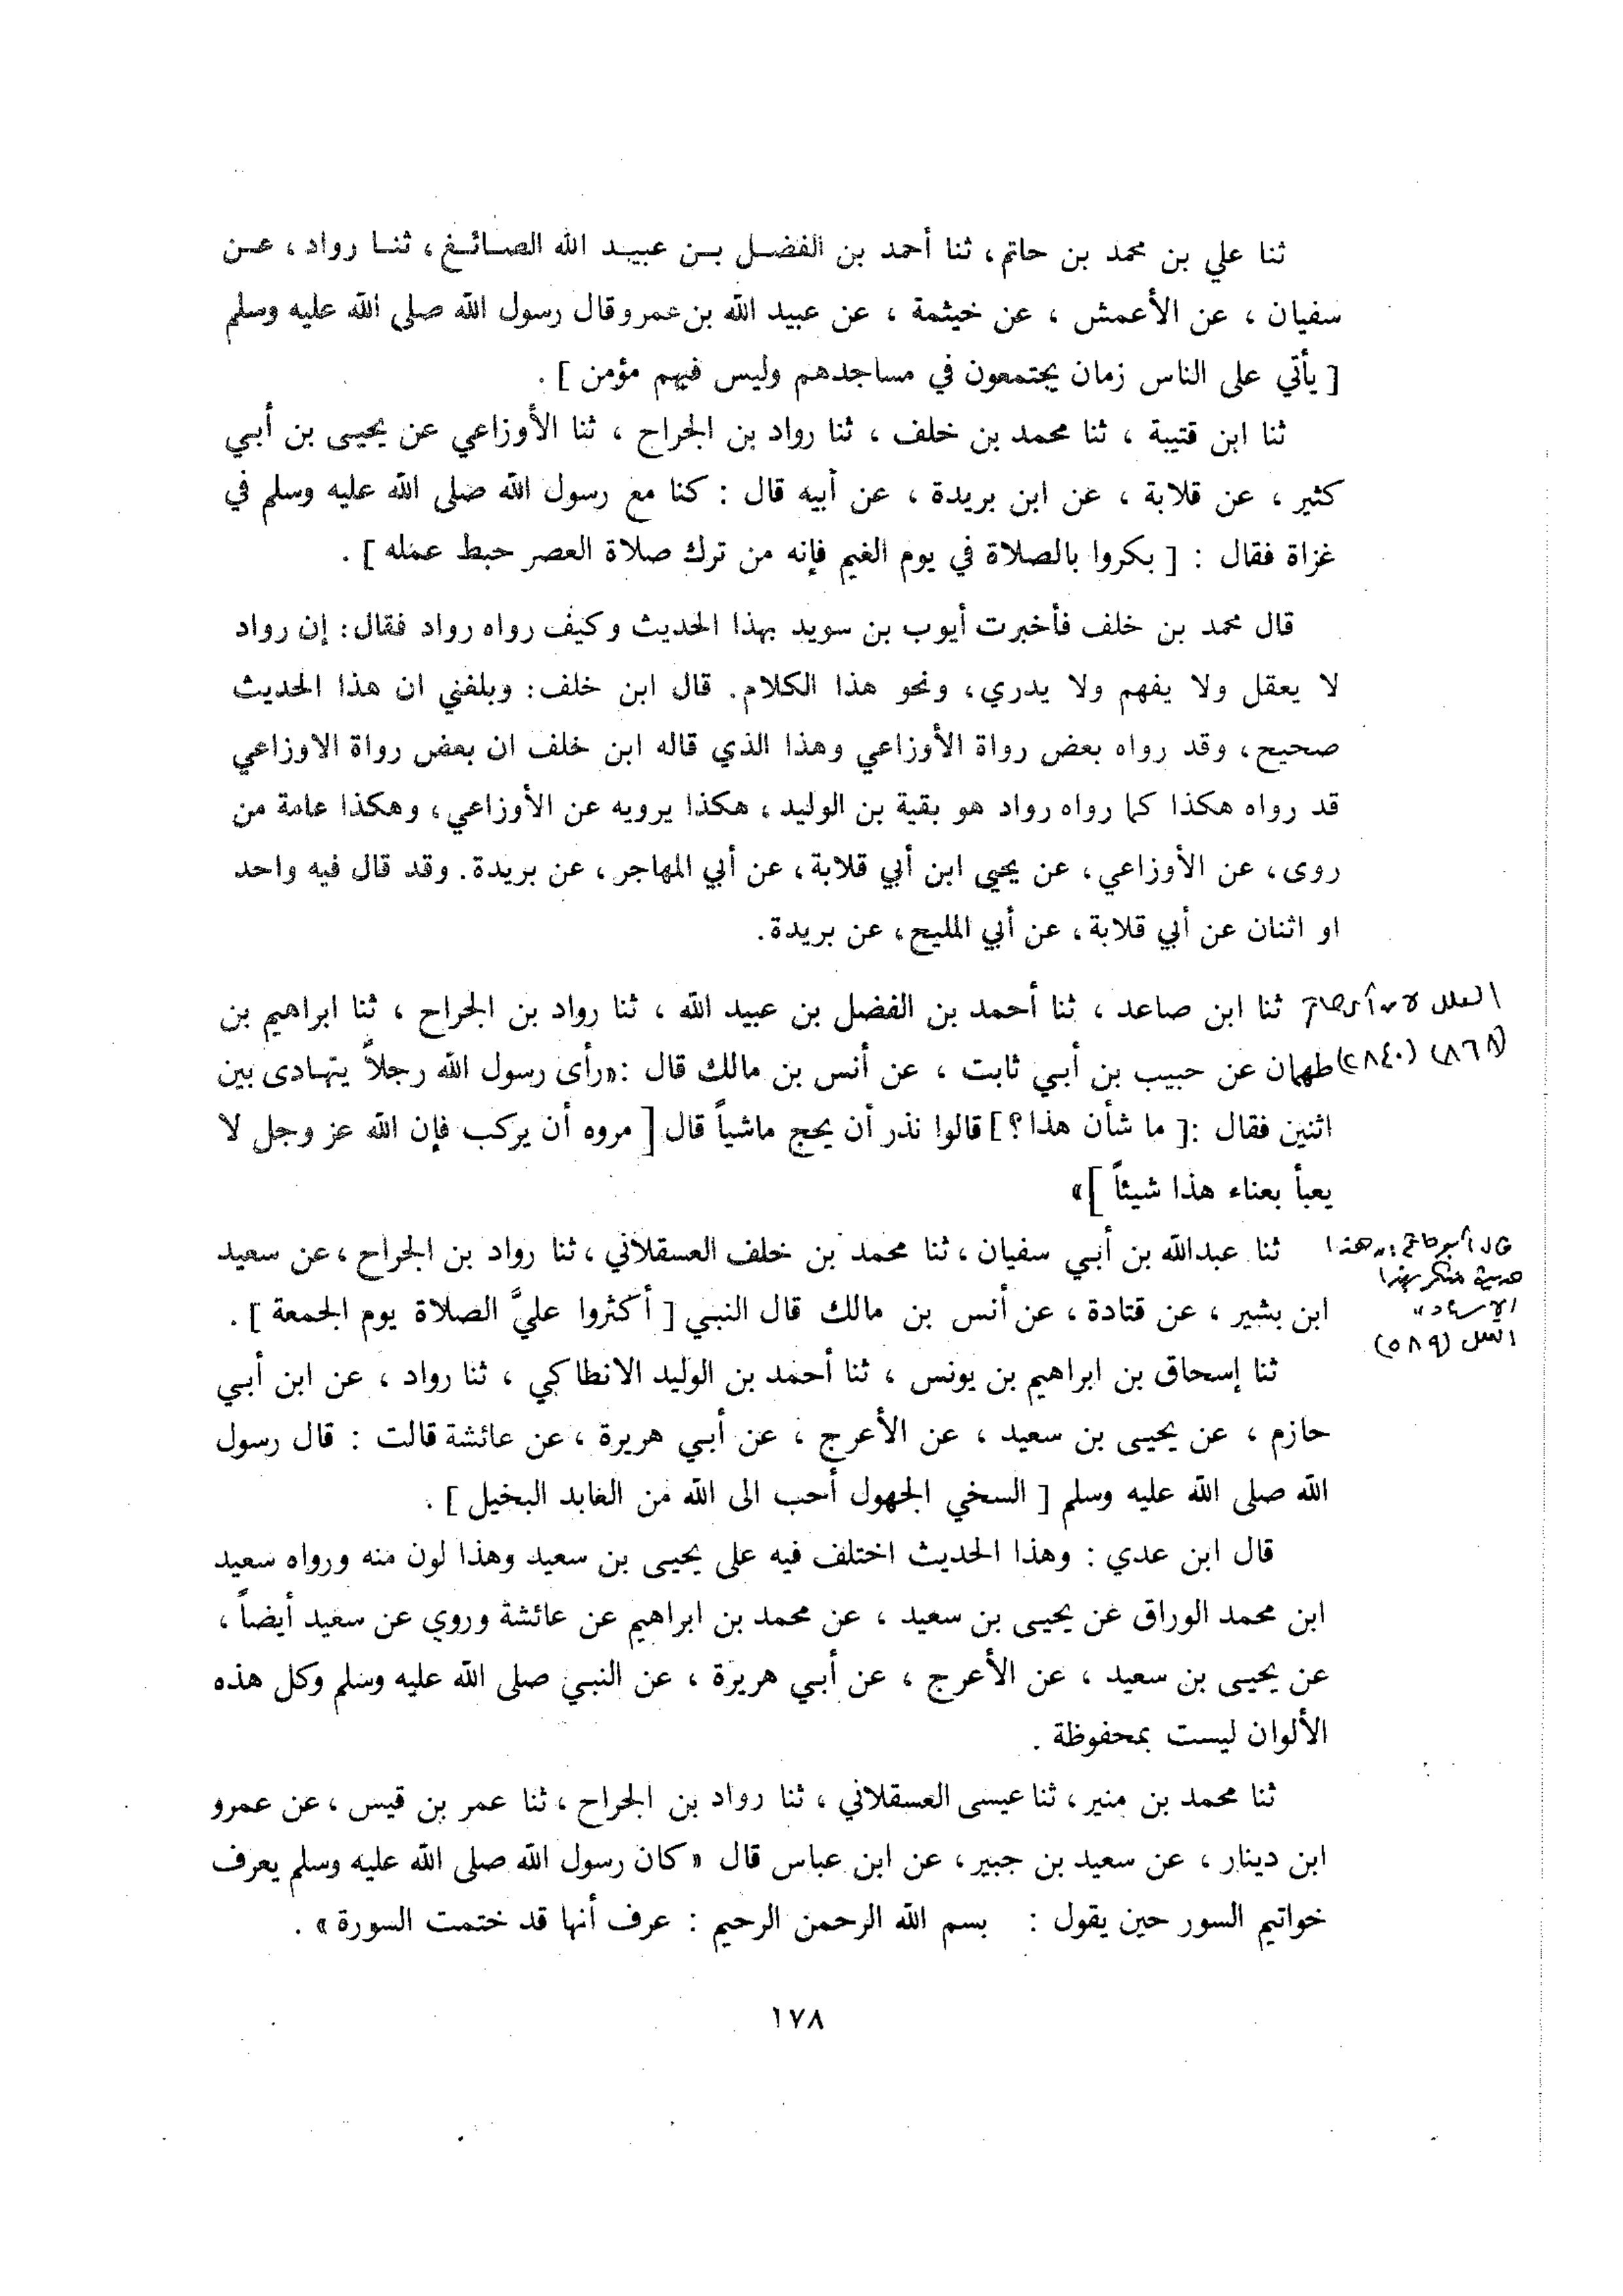 ثنا علي بن محمد بن حاتم، ثنا أحمد بن الفضل بن عبيد الله الصائغ، ثنا رواد، عن
سفيان ، عن الأعمش ، عن خيثمة ، عن عبيد الله بن عمرو قال رسول الله صلى الله عليه وسلم
[ يأتي على الناس زمان يجتمعون في مساجدهم وليس فيهم مؤمن ] .
ثنا ابن قتيبة ، ثنا محمد بن خلف ، ثنا رواد بن الجراح ، ثنا الأوزاعي عن يحيى بن أبي
كثير ، عن قلابة ، عن ابن بريدة ، عن أبيه قال : كنا مع رسول الله صلى الله عليه وسلم في
غزاة فقال : [ بكروا بالصلاة في يوم الغيم فإنه من ترك صلاة العصر حبط عمله ] .
قال محمد بن خلف فأخبرت أيوب بن سويد بهذا الحديث وكيف رواه رواد فقال: إن رواد
لا يعقل ولا يفهم ولا يدري، ونحو هذا الكلام. قال ابن خلف: وبلغني ان هذا الحديث
صحيح، وقد رواه بعض رواة الأوزاعي وهذا الذي قاله ابن خلف ان بعض رواة الاوزاعي
قد رواه هكذا كما رواه رواد هو بقية بن الوليد، هكذا يرويه عن الأوزاعي، وهكذا عامة من
روى، عن الأوزاعي، عن يحيى ابن أبي قلابة، عن أبي المهاجر، عن بريدة. وقد قال فيه واحد
او اثنان عن أبي قلابة، عن أبي المليح، عن بريدة.
العلل لابن أبي حاتم
(٨٦٨) (٢٨٤٠)
ثنا ابن صاعد ، ثنا أحمد بن الفضل بن عبيد الله ، ثنا رواد بن الجراح ، ثنا ابراهيم بن
طهمان عن حبيب بن أبي ثابت ، عن أنس بن مالك قال :«رأى رسول الله رجلاً يتهادى بين
اثنين فقال :[ ما شأن هذا؟] قالوا نذر أن يحج ماشياً قال [ مروه أن يركب فإن الله عز وجل لا
يعبأ بعناء هذا شيئاً ]»
قال أبو حاتم: «هذا
حديث منكر بهذا
الإسناد»
العلل (٥٨٩)
ثنا عبدالله بن أبي سفيان ، ثنا محمد بن خلف العسقلاني ، ثنا رواد بن الجراح ، عن سعيد
ابن بشير ، عن قتادة ، عن أنس بن مالك قال النبي [ أكثروا عليَّ الصلاة يوم الجمعة ] .
ثنا إسحاق بن ابراهيم بن يونس ، ثنا أحمد بن الوليد الانطاكي ، ثنا رواد ، عن ابن أبي
حازم ، عن يحيى بن سعيد ، عن الأعرج ، عن أبي هريرة ، عن عائشة قالت : قال رسول
الله صلى الله عليه وسلم [ السخي الجهول أحب الى الله من العابد البخيل ] .
قال ابن عدي : وهذا الحديث اختلف فيه على يحيى بن سعيد وهذا لون منه ورواه سعيد
ابن محمد الوراق عن يحيى بن سعيد ، عن محمد بن ابراهيم عن عائشة وروي عن سعيد أيضاً ،
عن يحيى بن سعيد ، عن الأعرج ، عن أبي هريرة ، عن النبي صلى الله عليه وسلم وكل هذه
الألوان ليست بمحفوظة .
ثنا محمد بن منير ، ثنا عيسى العسقلاني ، ثنا رواد بن الجراح ، ثنا عمر بن قيس ، عن عمرو
ابن دينار ، عن سعيد بن جبير ، عن ابن عباس قال « كان رسول الله صلى الله عليه وسلم يعرف
خواتيم السور حين يقول : بسم الله الرحمن الرحيم : عرف أنها قد ختمت السورة » .
١٧٨